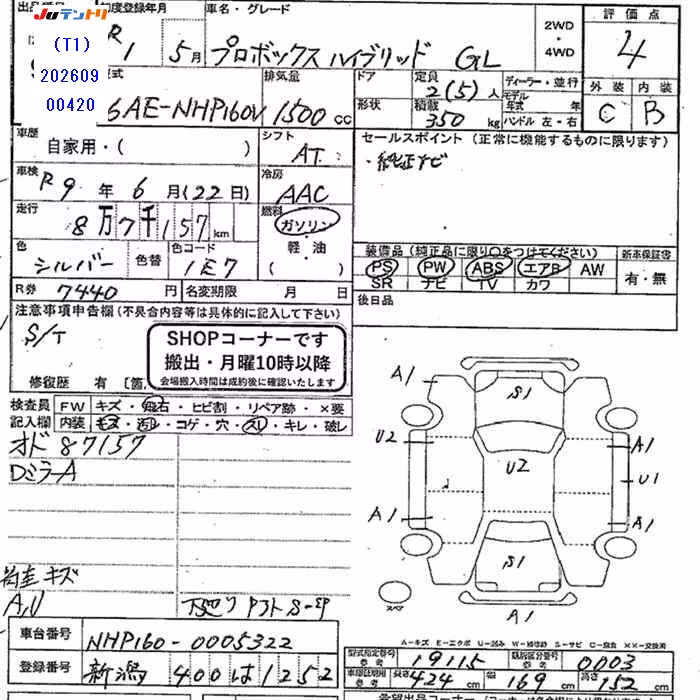 出品番号 初度登録年月 車名・グレード 評価点
Juテントリ
(T1)
202609
00420
R 1 5月 プロボックス ハイブリッド GL
2WD
・
4WD
4
型式 排気量 ドア 定員 ディーラー・並行 外装 内装
6AE-NHP160V 1500 cc
2(5)人
形状 積載 350 kg
モデル年式 年
ハンドル 左・右
C B
車歴 自家用・( )
シフト AT
セールスポイント (正常に機能するものに限ります)
・純正ナビ
車検 R9年 6月(22日)
冷房 AAC
走行 8万7千157km
燃料 ガソリン
軽・油
( )
色 シルバー 色替 色コード 1E7
装備品 (純正品に限り○をつけてください) 新車保証書
PS PW ABS エアB AW 有・無
SR ナビ TV カワ
R券 7440円 名変期限 月 日
後日品
注意事項申告欄(不具合内容等は具体的に記入して下さい)
S/T
SHOPコーナーです
搬出・月曜10時以降
会場搬入時間は成約後に確認いたします
修復歴 有 [箇
検査員 FW キズ・飛石・ヒビ割・リペア跡・×要
記入欄 内装 モス・汚レ・コゲ・穴・スレ・キレ・破レ
オド 87157
DミラーA
キズ
A,U
下廻り
A1
S1
U2
A1
U2
U1
A1
A1
S1
A1
スペア
A-キズ E-エクボ U-凹み W-補修跡 S-サビ C-腐食 ××-交換済
車台番号 NHP160-0005322
登録番号 新潟 400 は 1252
型式指定番号 19115 類別区分番号 0003
参考 参考
車検証明用 長さ 424 cm 幅 169 cm 高さ 152 cm
希望出品コーナー